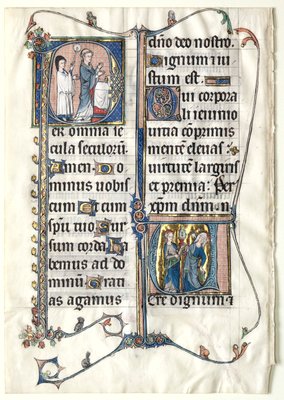 Per omnia se
cula seculorū.
Amen. Do
minus uobis
cum Et cum
spū tuo Sur
sum corda ha
bemus ad do
minū Grati
as agamus
dño deo nostro.
Dignum iu
stum est.
Qui corpora
li ieiunio
uitia cōprimis
mentē eleuas:
uirtutē largiris
et premia: Per
xpm dñm n
Uere dignum &